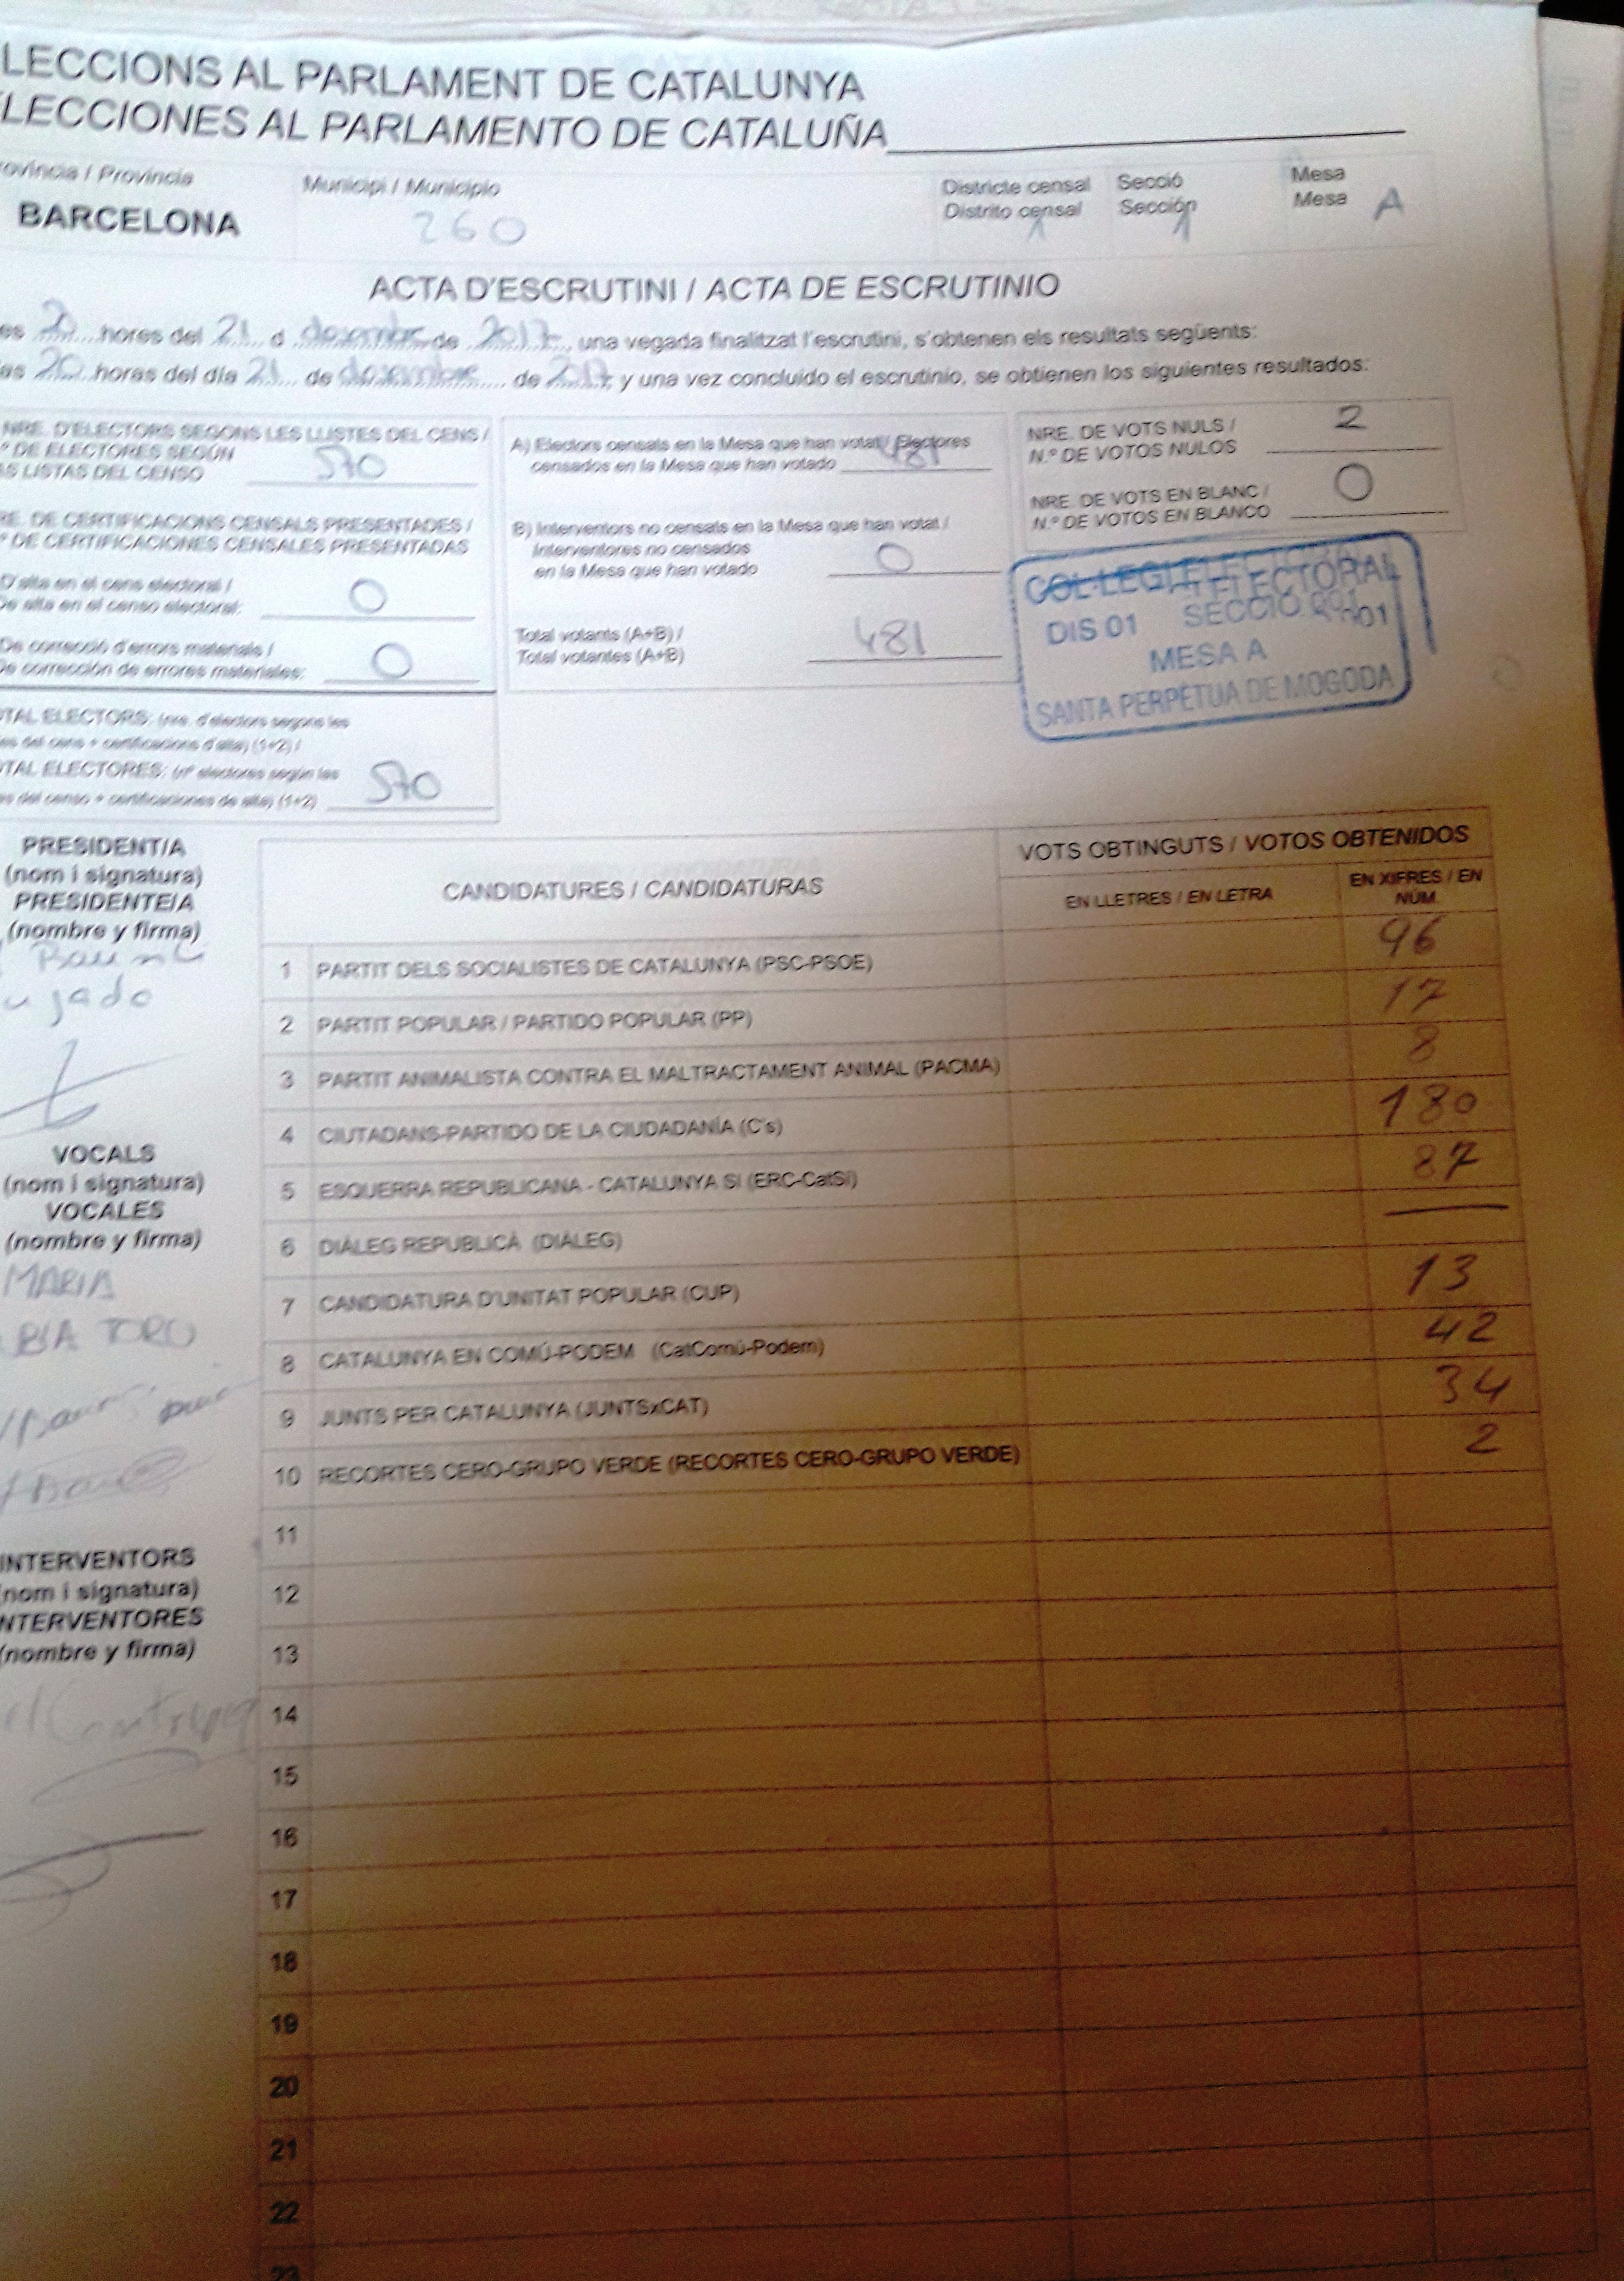 LECCIONS AL PARLAMENT DE CATALUNYA
LECCIONES AL PARLAMENTO DE CATALUÑA
ovíncia / Provincia
BARCELONA
Municipi / Municipio
260
Districte censal
Distrito censal
1
Secció
Sección
1
Mesa
Mesa A
ACTA D'ESCRUTINI / ACTA DE ESCRUTINIO
es 20 hores del 21 d desembre de 2017, una vegada finalitzat l'escrutini, s'obtenen els resultats següents:
as 20 horas del día 21 de desembre de 2017, y una vez concluido el escrutinio, se obtienen los siguientes resultados:
NRE. D'ELECTORS SEGONS LES LLISTES DEL CENS /
º DE ELECTORES SEGÚN
AS LISTAS DEL CENSO 570
RE. DE CERTIFICACIONS CENSALS PRESENTADES /
º DE CERTIFICACIONES CENSALES PRESENTADAS
D'alta en el cens electoral /
De alta en el censo electoral: 0
De correcció d'errors materials /
De corrección de errores materiales: 0
TAL ELECTORS: (nre. d'electors segons les
es del cens + certificacions d'alta) (1+2) /
TAL ELECTORES: (nº electores según las
as del censo + certificaciones de alta) (1+2) 570
A) Electors censats en la Mesa que han votat / Electores
censados en la Mesa que han votado 481
B) Interventors no censats en la Mesa que han votat /
Interventores no censados
en la Mesa que han votado 0
Total votants (A+B) /
Total votantes (A+B) 481
NRE. DE VOTS NULS /
N.º DE VOTOS NULOS 2
NRE. DE VOTS EN BLANC /
N.º DE VOTOS EN BLANCO 0
COL·LEGI ELECTORAL
DIS 01 SECCIÓ 001
MESA A
SANTA PERPÈTUA DE MOGODA
PRESIDENT/A
(nom i signatura)
PRESIDENTE/A
(nombre y firma)
VOCALS
(nom i signatura)
VOCALES
(nombre y firma)
MARIA
BIA TORO
INTERVENTORS
(nom i signatura)
NTERVENTORES
(nombre y firma)
CANDIDATURES / CANDIDATURAS
VOTS OBTINGUTS / VOTOS OBTENIDOS
EN LLETRES / EN LETRA
EN XIFRES / EN
NÚM.
1 PARTIT DELS SOCIALISTES DE CATALUNYA (PSC-PSOE) 96
2 PARTIT POPULAR / PARTIDO POPULAR (PP) 17
3 PARTIT ANIMALISTA CONTRA EL MALTRACTAMENT ANIMAL (PACMA) 8
4 CIUTADANS-PARTIDO DE LA CIUDADANÍA (C's) 180
5 ESQUERRA REPUBLICANA - CATALUNYA SI (ERC-CatSí) 87
6 DIÀLEG REPUBLICÀ (DIÀLEG) —
7 CANDIDATURA D'UNITAT POPULAR (CUP) 13
8 CATALUNYA EN COMÚ-PODEM (CatComú-Podem) 42
9 JUNTS PER CATALUNYA (JUNTSxCAT) 34
10 RECORTES CERO-GRUPO VERDE (RECORTES CERO-GRUPO VERDE) 2
11
12
13
14
15
16
17
18
19
20
21
22
23